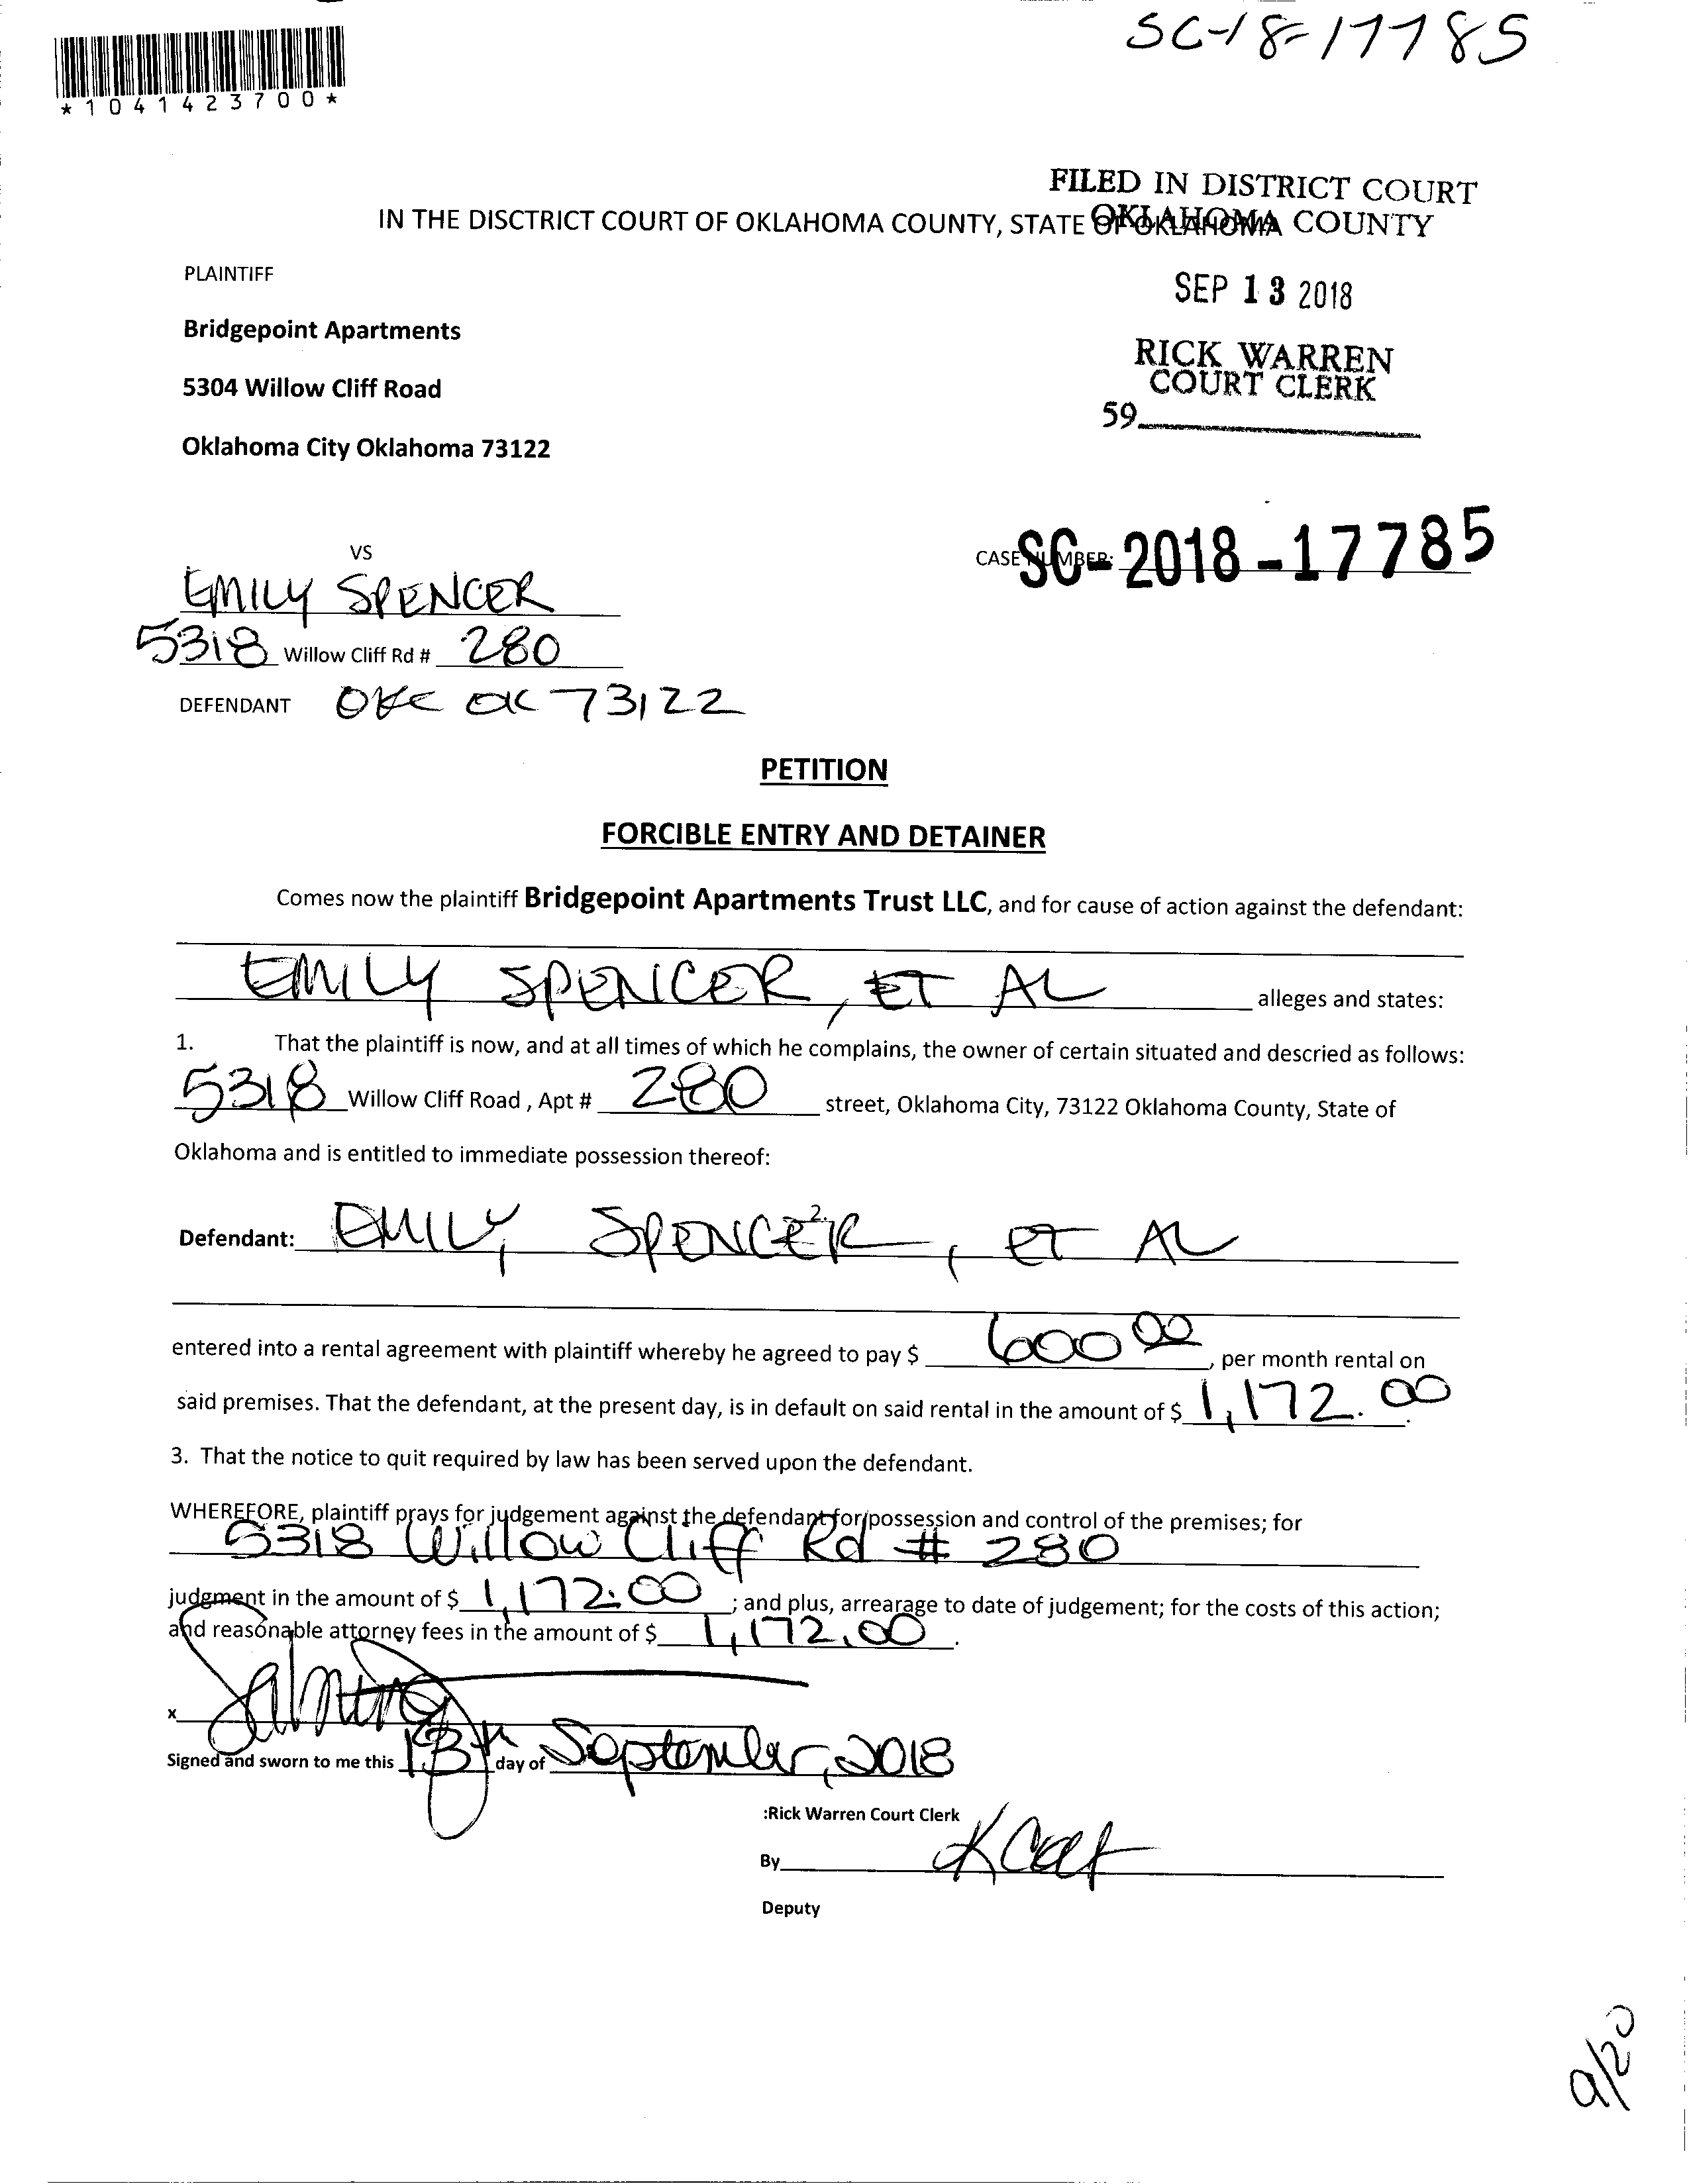 SC-18-17785
*1041423700*
FILED IN DISTRICT COURT
OKLAHOMA COUNTY
IN THE DISCTRICT COURT OF OKLAHOMA COUNTY, STATE OF OKLAHOMA
PLAINTIFF
SEP 13 2018
Bridgepoint Apartments
RICK WARREN
COURT CLERK
5304 Willow Cliff Road
59
Oklahoma City Oklahoma 73122
VS
CASE NUMBER: SC-2018-17785
EMILY SPENCER
5318 Willow Cliff Rd # 280
DEFENDANT OKC OK 73122
PETITION
FORCIBLE ENTRY AND DETAINER
Comes now the plaintiff Bridgepoint Apartments Trust LLC, and for cause of action against the defendant:
EMILY SPENCER, ET AL alleges and states:
1. That the plaintiff is now, and at all times of which he complains, the owner of certain situated and descried as follows:
5318 Willow Cliff Road , Apt # 280 street, Oklahoma City, 73122 Oklahoma County, State of
Oklahoma and is entitled to immediate possession thereof:
2.
Defendant: EMILY SPENCER, ET AL
entered into a rental agreement with plaintiff whereby he agreed to pay $ 600 00, per month rental on
said premises. That the defendant, at the present day, is in default on said rental in the amount of $ 1,172.00.
3. That the notice to quit required by law has been served upon the defendant.
WHEREFORE, plaintiff prays for judgement against the defendant for possession and control of the premises; for
5318 Willow Cliff Rd # 280
judgment in the amount of $ 1,172.00; and plus, arrearage to date of judgement; for the costs of this action;
and reasonable attorney fees in the amount of $ 1,172.00.
x
Signed and sworn to me this 13th day of September, 2018
:Rick Warren Court Clerk
By
Deputy
9/20